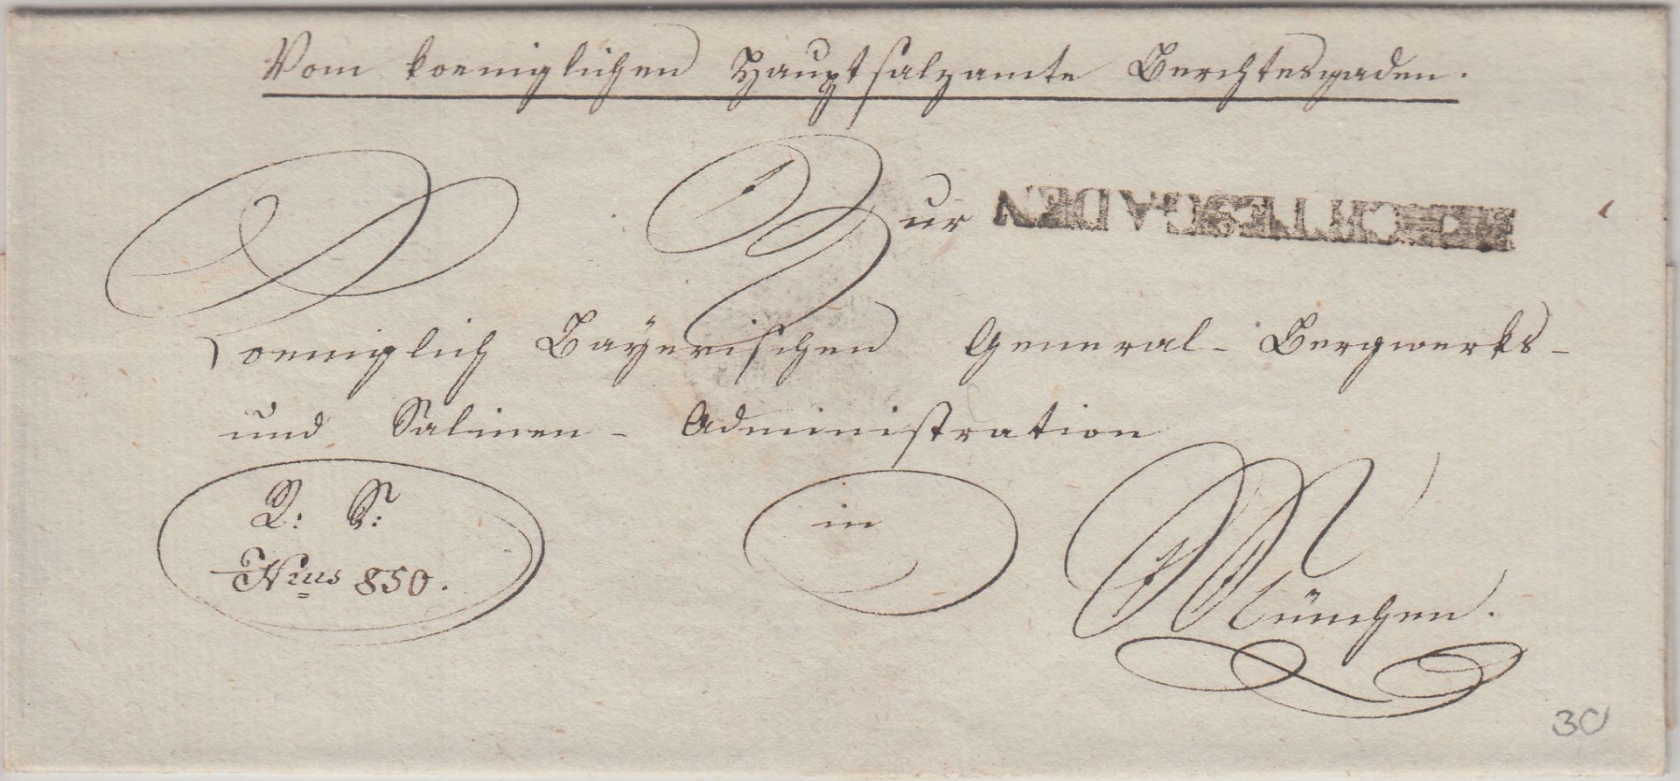 Vom koeniglichen Hauptsalzamte Berchtesgaden.
Zur
CHTESGADEN
Koeniglich Bayerischen General-Bergwerks-
und Salinen-Administration
R: S:
Nrus 850.
in
München.
30